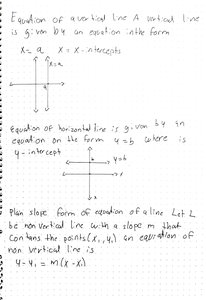 Equation of a vertical line A vertical line
is given by an equation in the form
x = a x = x-intercepts
x=a
a
equation of horizontal line is given by an
equation on the form y = b where is
y-intercept
b y=b
x
plan slope form of equation of a line Let L
be nonvertical line with a slope m that
contans the points (x₁, y₁) an equation of
non vertical line is
y - y₁ = m(x - x₁)